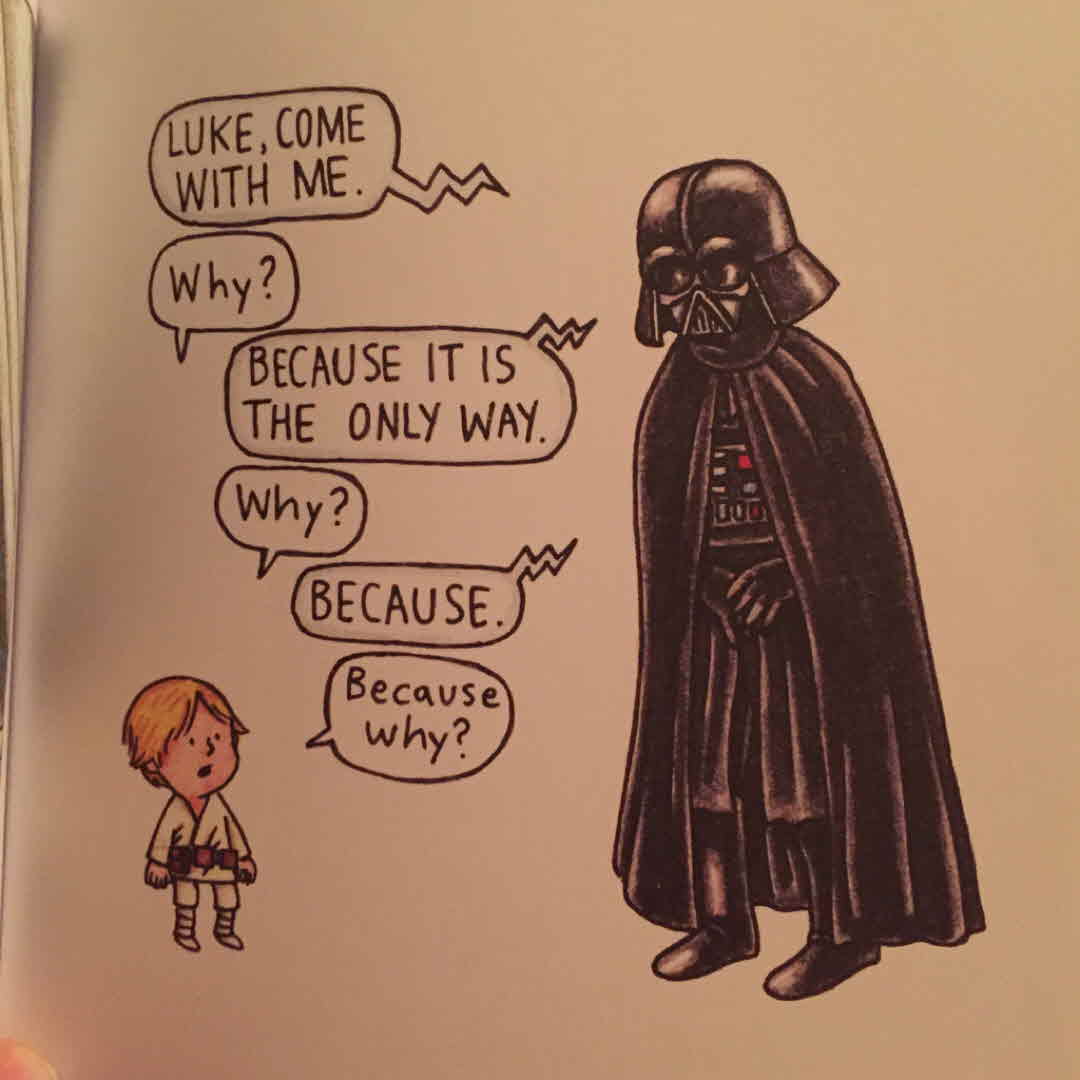 LUKE, COME
WITH ME.
Why?
BECAUSE IT IS
THE ONLY WAY.
Why?
BECAUSE.
Because
why?